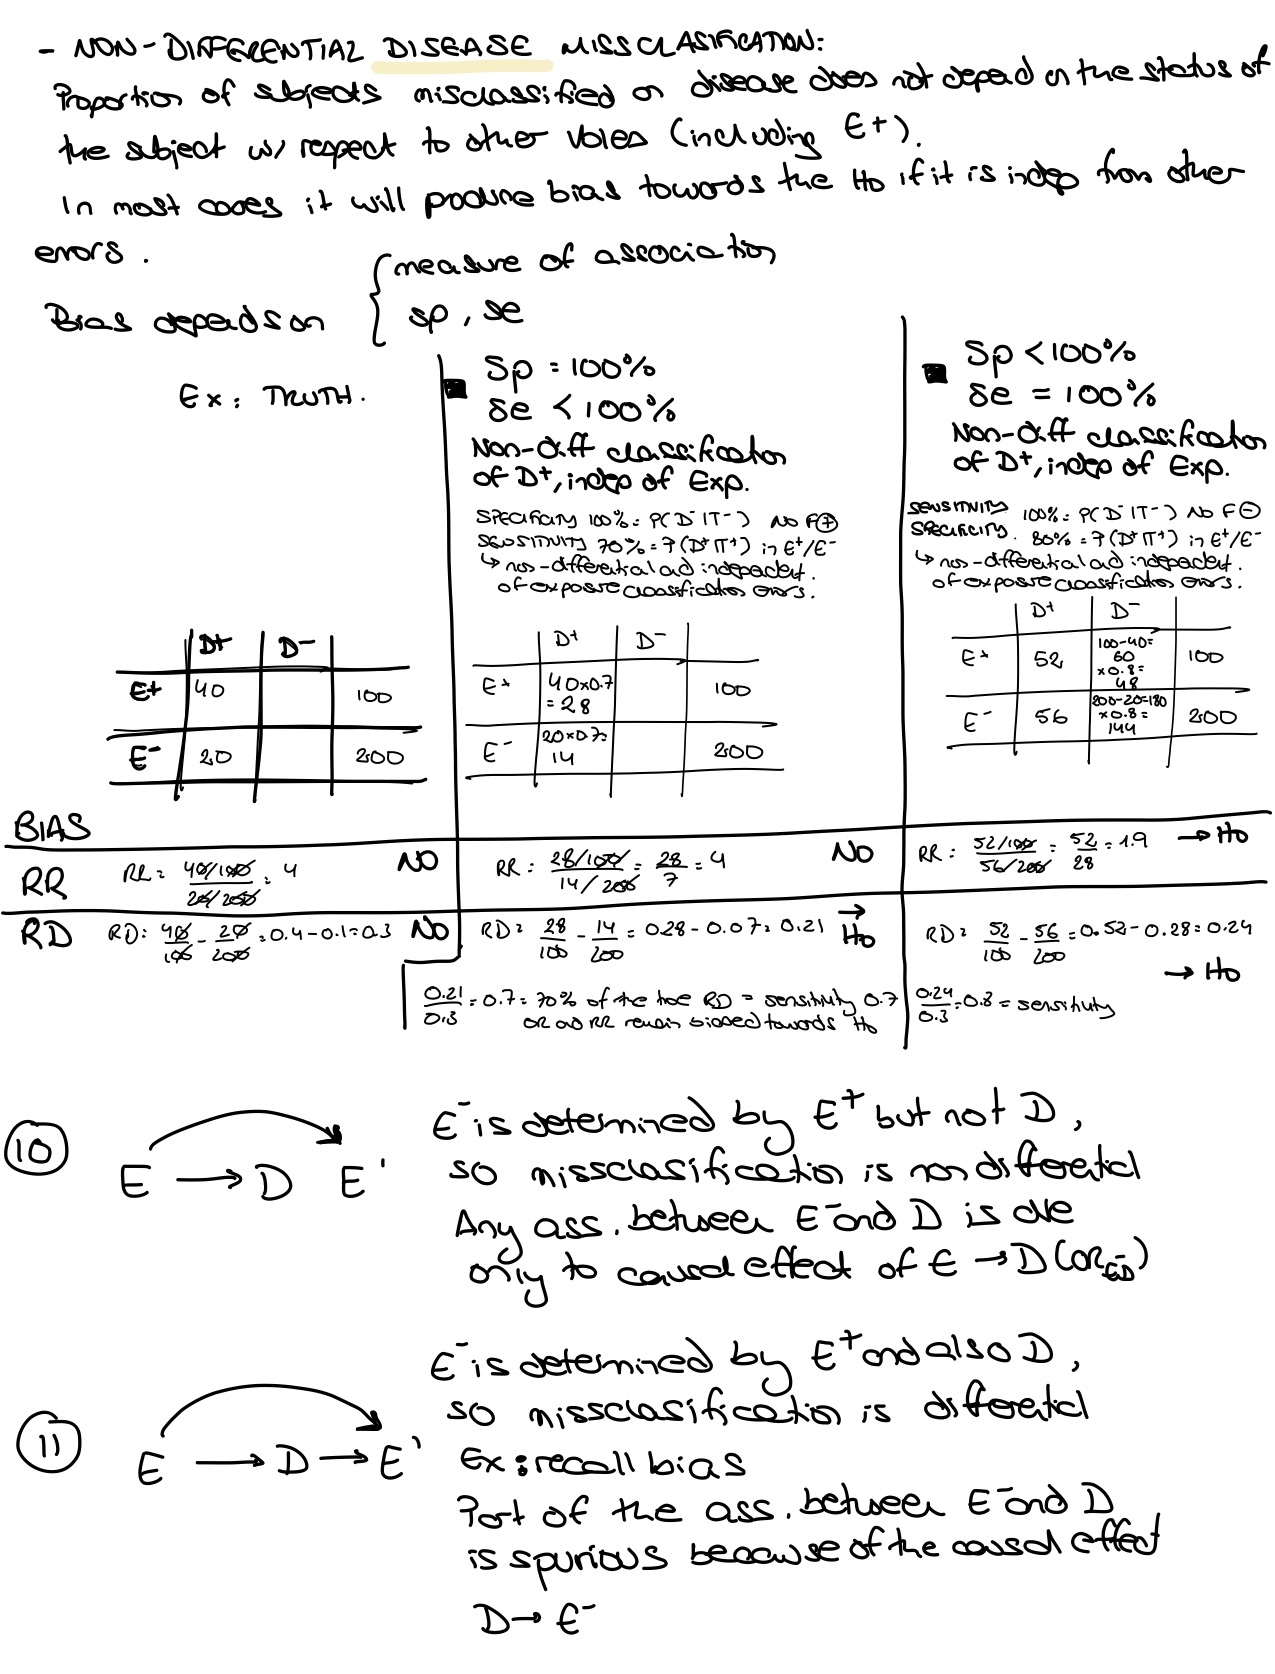 - NON-DIFFERENTIAL DISEASE MISSCLASIFICATION:
Proportion of subjects misclassified on disease does not depend on the status of
the subject w/ respect to other vbles (including E+).
In most cases it will produce bias towards the Ho if it is indep from other
errors.
Bias depends on { measure of association
sp, se
Ex: TRUTH.
D+ D-
E+ 40 100
E- 20 200
Sp = 100%
Se < 100%
Non-diff classification
of D+, indep of Exp.
SPECIFICITY 100% = P(D-|T-) NO F⊕
SENSITIVITY 70% = P(D+|T+) in E+/E-
↳ non-differential and independent
of exposure classification errors.
D+ D-
E+ 40x0.7 = 28 100
E- 20x0.7= 14 200
Sp < 100%
Se = 100%
Non-diff classification
of D+, indep of Exp.
SENSITIVITY 100% = P(D-|T-) NO F⊖
SPECIFICITY. 80% = P(D+|T+) in E+/E-
↳ non-differential and independent.
of exposure classification errors.
D+ D-
E+ 52 100-40= 60 x0.8= 48 100
E- 56 200-20=180 x0.8= 144 200
BIAS
RR RR = 40/100 / 20/200 = 4 NO RR = 28/100 / 14/200 = 28/7 = 4 NO RR = 52/100 / 56/200 = 52/28 = 1.9 → Ho
RD RD = 40/100 - 20/200 = 0.4-0.1=0.3 NO RD = 28/100 - 14/200 = 0.28-0.07=0.21 → Ho RD = 52/100 - 56/200 = 0.52-0.28=0.24 → Ho
0.21/0.3 = 0.7 = 70% of the true RD = sensitivity 0.7
OR and RR remain biased towards Ho
0.24/0.3 = 0.8 = sensitivity
10
E → D E'
E- is determined by E+ but not D,
so missclasification is non differential
Any ass. between E- and D is due
only to causal effect of E → D (OR ED)
11
E → D → E'
E- is determined by E+ and also D,
so missclasification is differential
Ex: recall bias
Part of the ass. between E- and D
is spurious because of the causal effect
D → E-